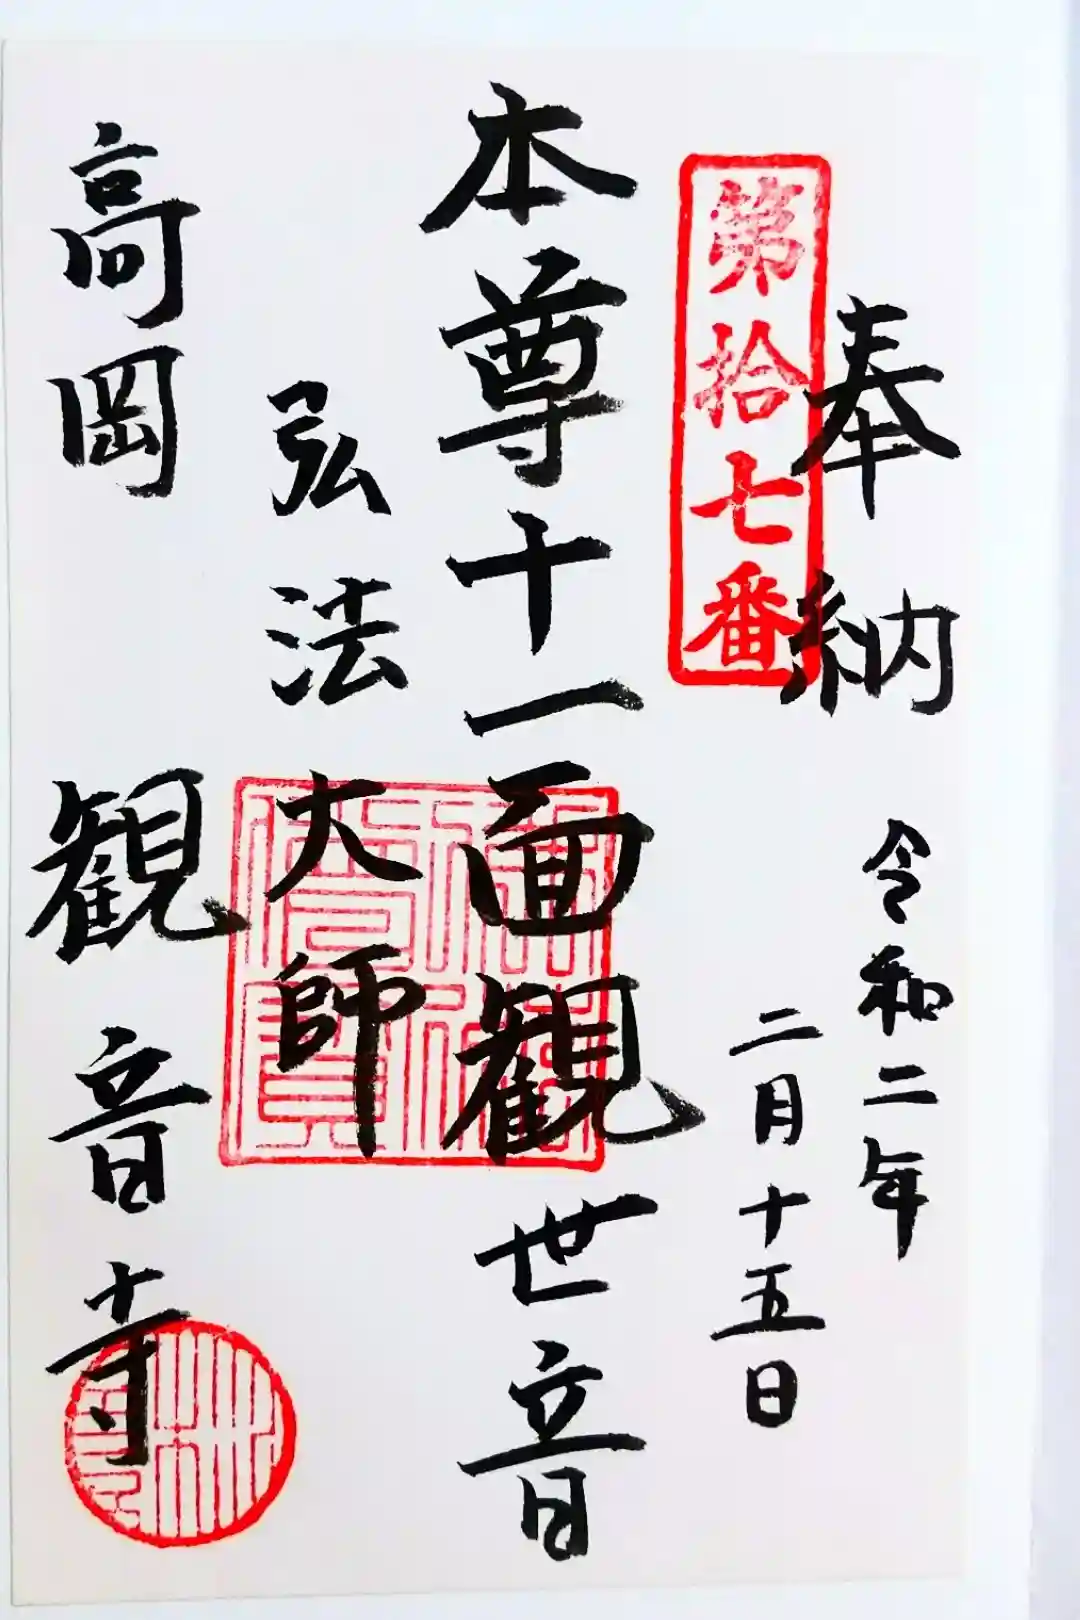 奉納
令和二年
二月十五日
第拾七番
本尊十一面観世音
弘法大師
高岡 観音寺